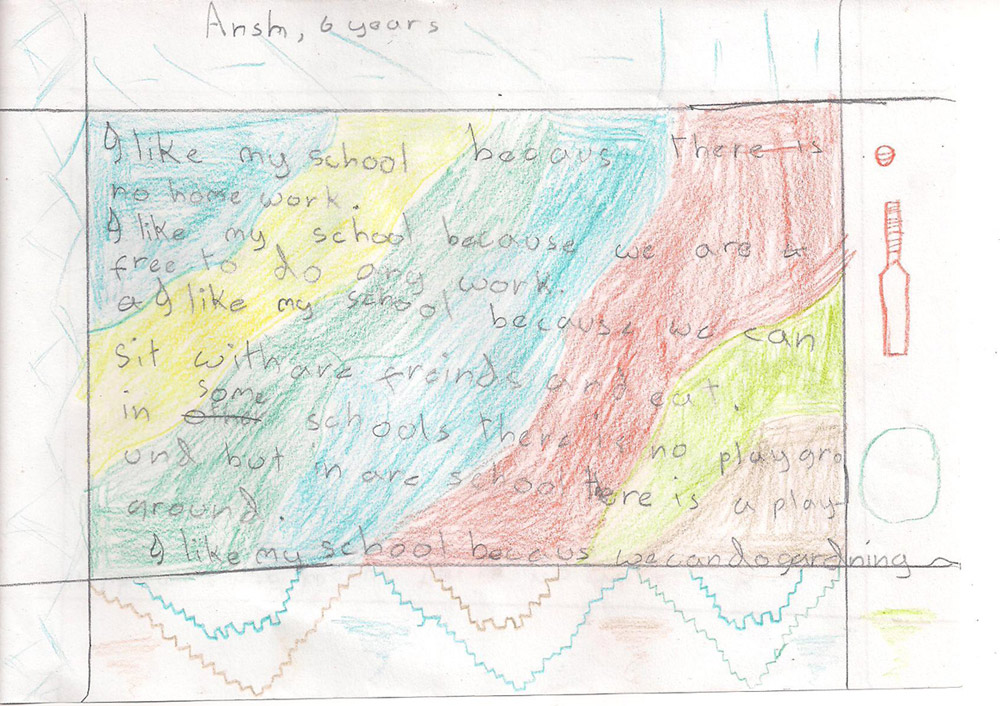 Ansh, 6 years
I like my school becaus there is
no home work.
I like my school because we are a
free to do any work.
a I like my school because we can
sit with are freinds and eat.
in some schools there is no playgro
und but in are school there is a play-
ground.
I like my school becaus we can do gardning